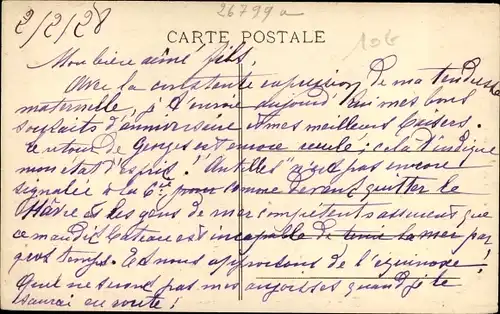 2/2/28
26799a
CARTE POSTALE
10G
Mon bien aimé fils,
Avec la constante expression de ma tendresse
maternelle, je t'envoie aujourd'hui mes bons
souhaits d'anniversaire et mes meilleurs baisers.
Le retour de Georges est encore reculé; cela t'indique
mon état d'esprit! "Antilles" n'est pas encore
signalée à la Cie pour comme devant quitter le
Hâvre et les gens de mer compétents assurent que
ce maudit bateau est incapable de tenir la mer par
gros temps. Et nous approchons de l'équinoxe!
Que ne seront pas mes angoisses quand je le
saurai en route!